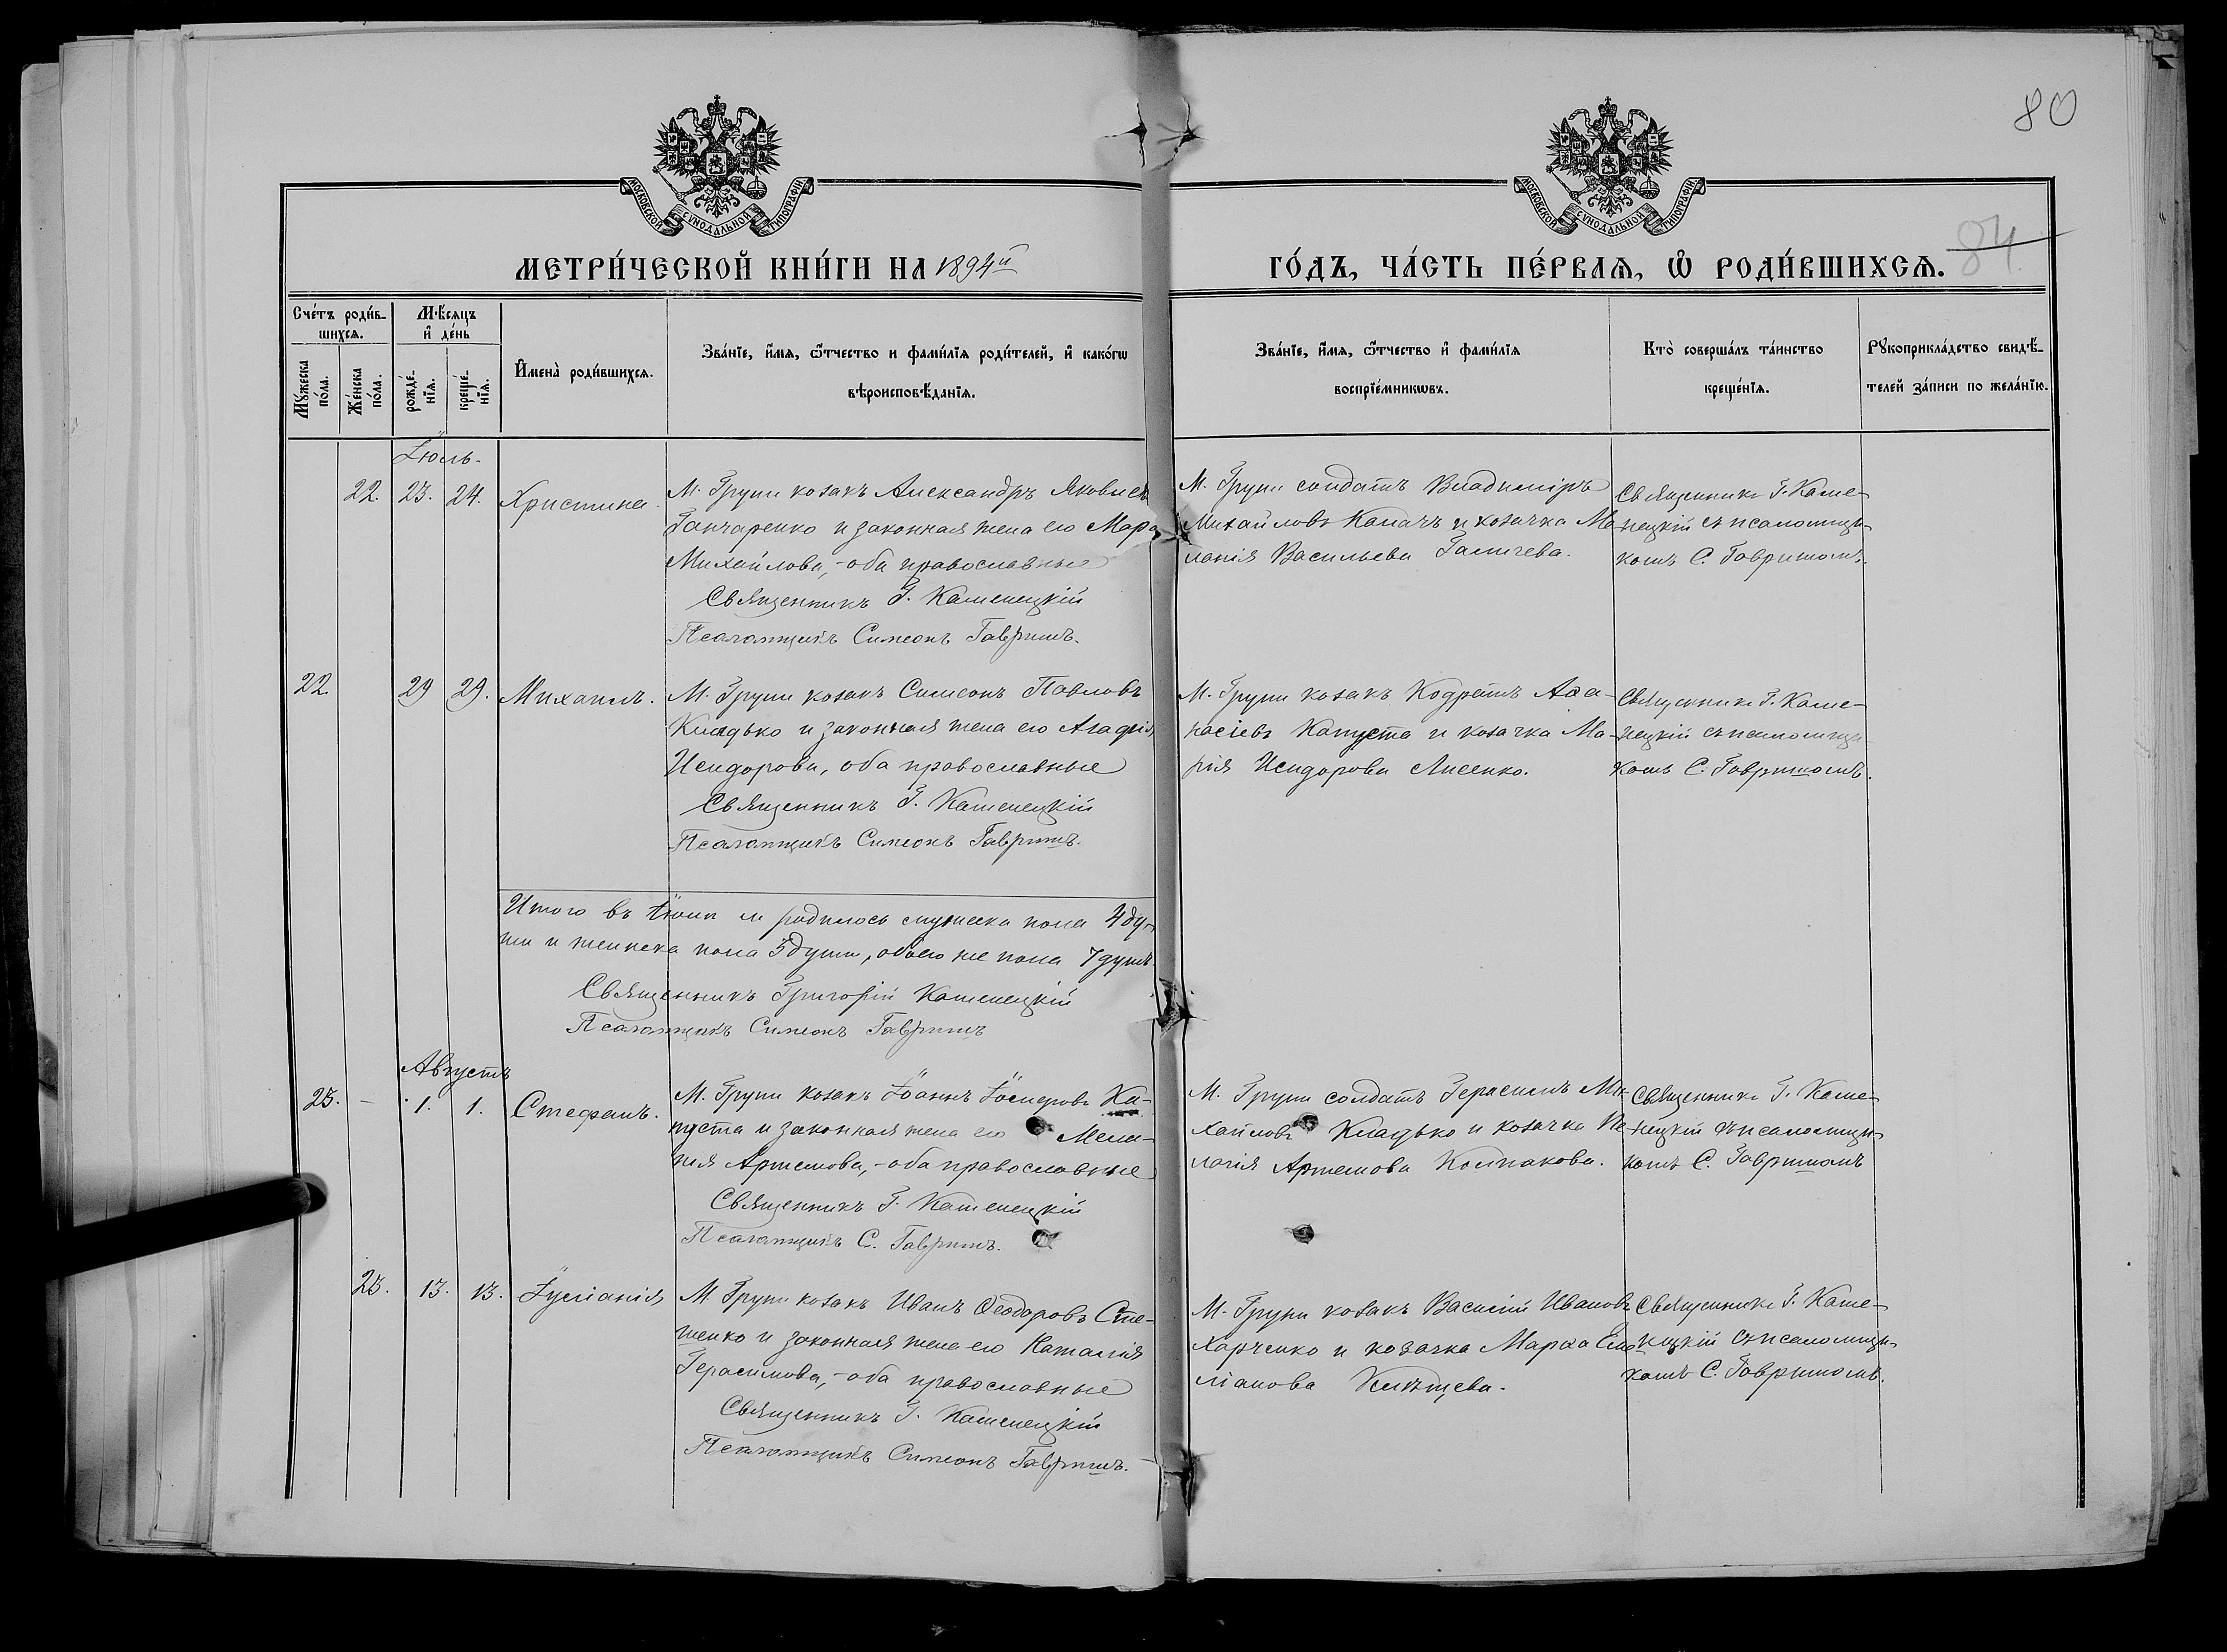 80
МОСКОВСКОЙ СѴНОДАЛЬНОЙ ТИПОГРАФІИ.
МОСКОВСКОЙ СѴНОДАЛЬНОЙ ТИПОГРАФІИ.
84.
МЕТРИ́ЧЕСКОЙ КНИ́ГИ НА 1894й
ГО́ДЪ, ЧА́СТЬ ПЕ́РВАѦ, Ѡ РОДИ́ВШИХСѦ.
Сче́тъ роди́в-
шихсѧ.
Мꙋ́жеска
по́ла.
Же́нска
по́ла.
Мѣ́сѧцъ
и҆ де́нь
рожде́-
нїѧ.
креще́-
нїѧ.
И҆мена̀ роди́вшихсѧ.
Зва́нїе, и҆́мѧ, ѻ҆́тчество и фами́лїѧ роди́телей, и҆ како́гѡ
вѣроисповѣ́данїѧ.
Зва́нїе, и҆́мѧ, ѻ҆́тчество и҆ фами́лїѧ
воспрїе́мникѡвъ.
Кто̀ соверша́лъ та́инство
креще́нїѧ.
Рꙋкоприкла́дство свидѣ́-
телей за́писи по жела́нїю.
Іюль.
22. 23. 24. Христина.
М. Груни козакъ Александръ Яковлевъ
Ганчаренко и законная жена его Марѳа
Михайлова, - оба православные
Священникъ Г. Каменецкій
Псаломщикъ Симеонъ Гавришъ.
М. Груни солдатъ Владиміръ
Михайловъ Калачъ и козачка Ме-
ланія Васильева Галичева.
Священникъ Г. Каме-
нецкій съ псаломщи-
комъ С. Гавришомъ.
22. 29 29. Михаилъ.
М. Груни козакъ Симеонъ Павловъ
Кладько и законная жена его Агафія
Исидорова, оба православные
Священникъ Г. Каменецкій
Псаломщикъ Симеонъ Гавришъ.
М. Груни козакъ Кодратъ Аѳа-
насіевъ Капуста и козачка Ма-
рія Исидорова Лисенко.
Священникъ Г. Каме-
нецкій съ псаломщи-
комъ С. Гавришомъ.
Итого въ Іюлѣ м родилось мужеска пола 4 ду-
ши и женска пола 3 души, обоего же пола 7 душъ.
Священникъ Григорій Каменецкій
Псаломщикъ Симеонъ Гавришъ
Августъ
23. - 1. 1. Стефанъ.
М. Груни козакъ Іоаннъ Іосифовъ Ка-
пуста и законная жена его Мела-
нія Артемова, - оба православные
Священникъ Г. Каменецкій
Псаломщикъ С. Гавришъ.
М. Груни солдатъ Герасимъ Ми-
хайловъ Кладько и козачка Пе-
лагія Артемова Колпакова.
Священникъ Г. Каме-
нецкій съ псаломщи-
комъ С. Гавришомъ
23. 13. 13. Іуліанія
М. Груни козакъ Иванъ Ѳеодоровъ Сте-
шенко и законная жена его Наталія
Герасимова, - оба православные
Священникъ Г. Каменецкій
Псаломщикъ Симеонъ Гавришъ.
М. Груни козакъ Василій Ивановъ
Харченко и козачка Марѳа Еми-
ліанова
Священникъ Г. Каме-
нецкій съ псаломщи-
комъ С. Гавришомъ.